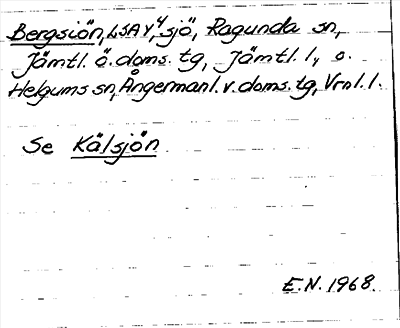 Bergsjön, LSA Y⁴, sjö, Ragunda sn,
Jämtl. ö. doms. tg, Jämtl. l., o.
Helgums sn, Ångermanl. v. doms. tg, Vrnl. l.
Se Kälsjön
E.N. 1968.